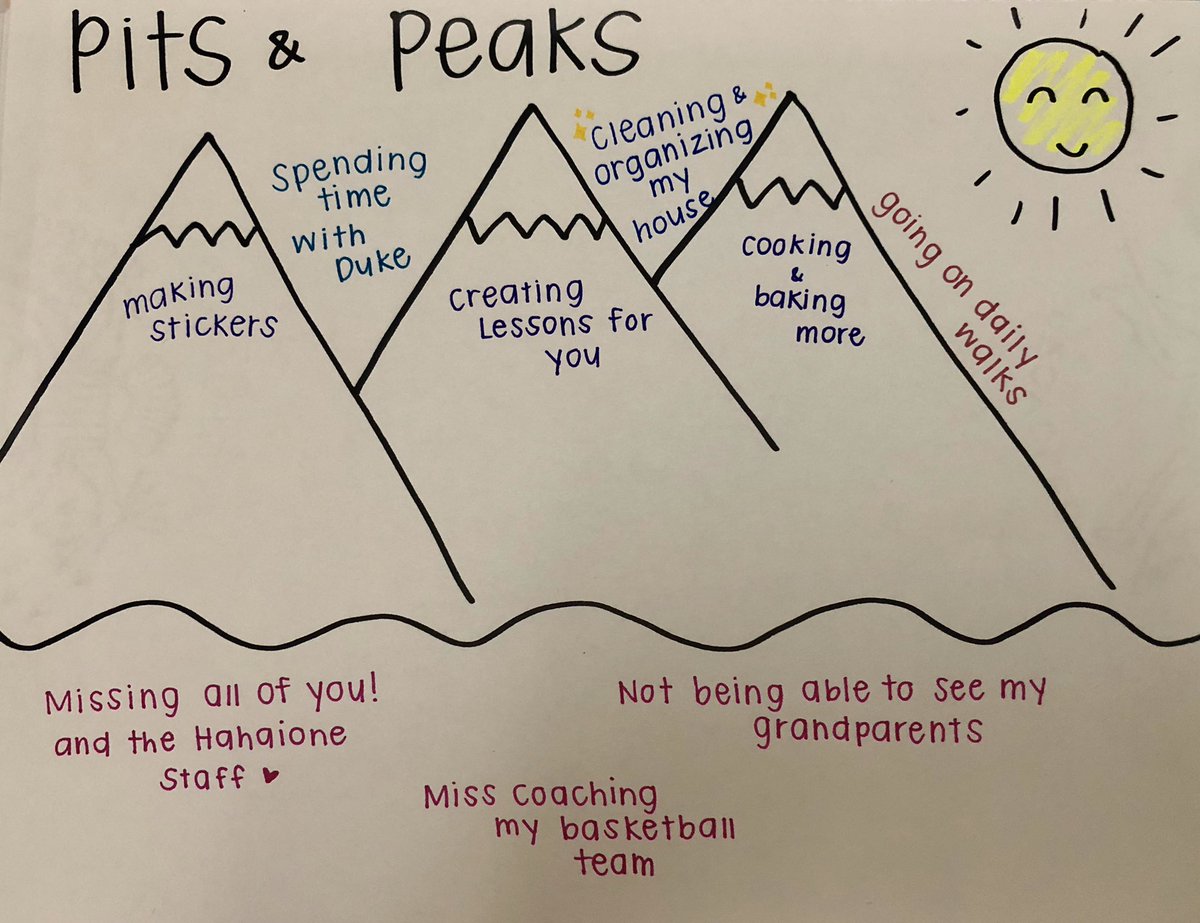 Pits & Peaks
Spending
time
with
Duke
Cleaning &
organizing
my
house
making
stickers
creating
Lessons for
you
cooking
&
baking
more
going on daily
walks
Missing all of you!
and the Hahaione
Staff
Not being able to see my
grandparents
Miss coaching
my basketball
team